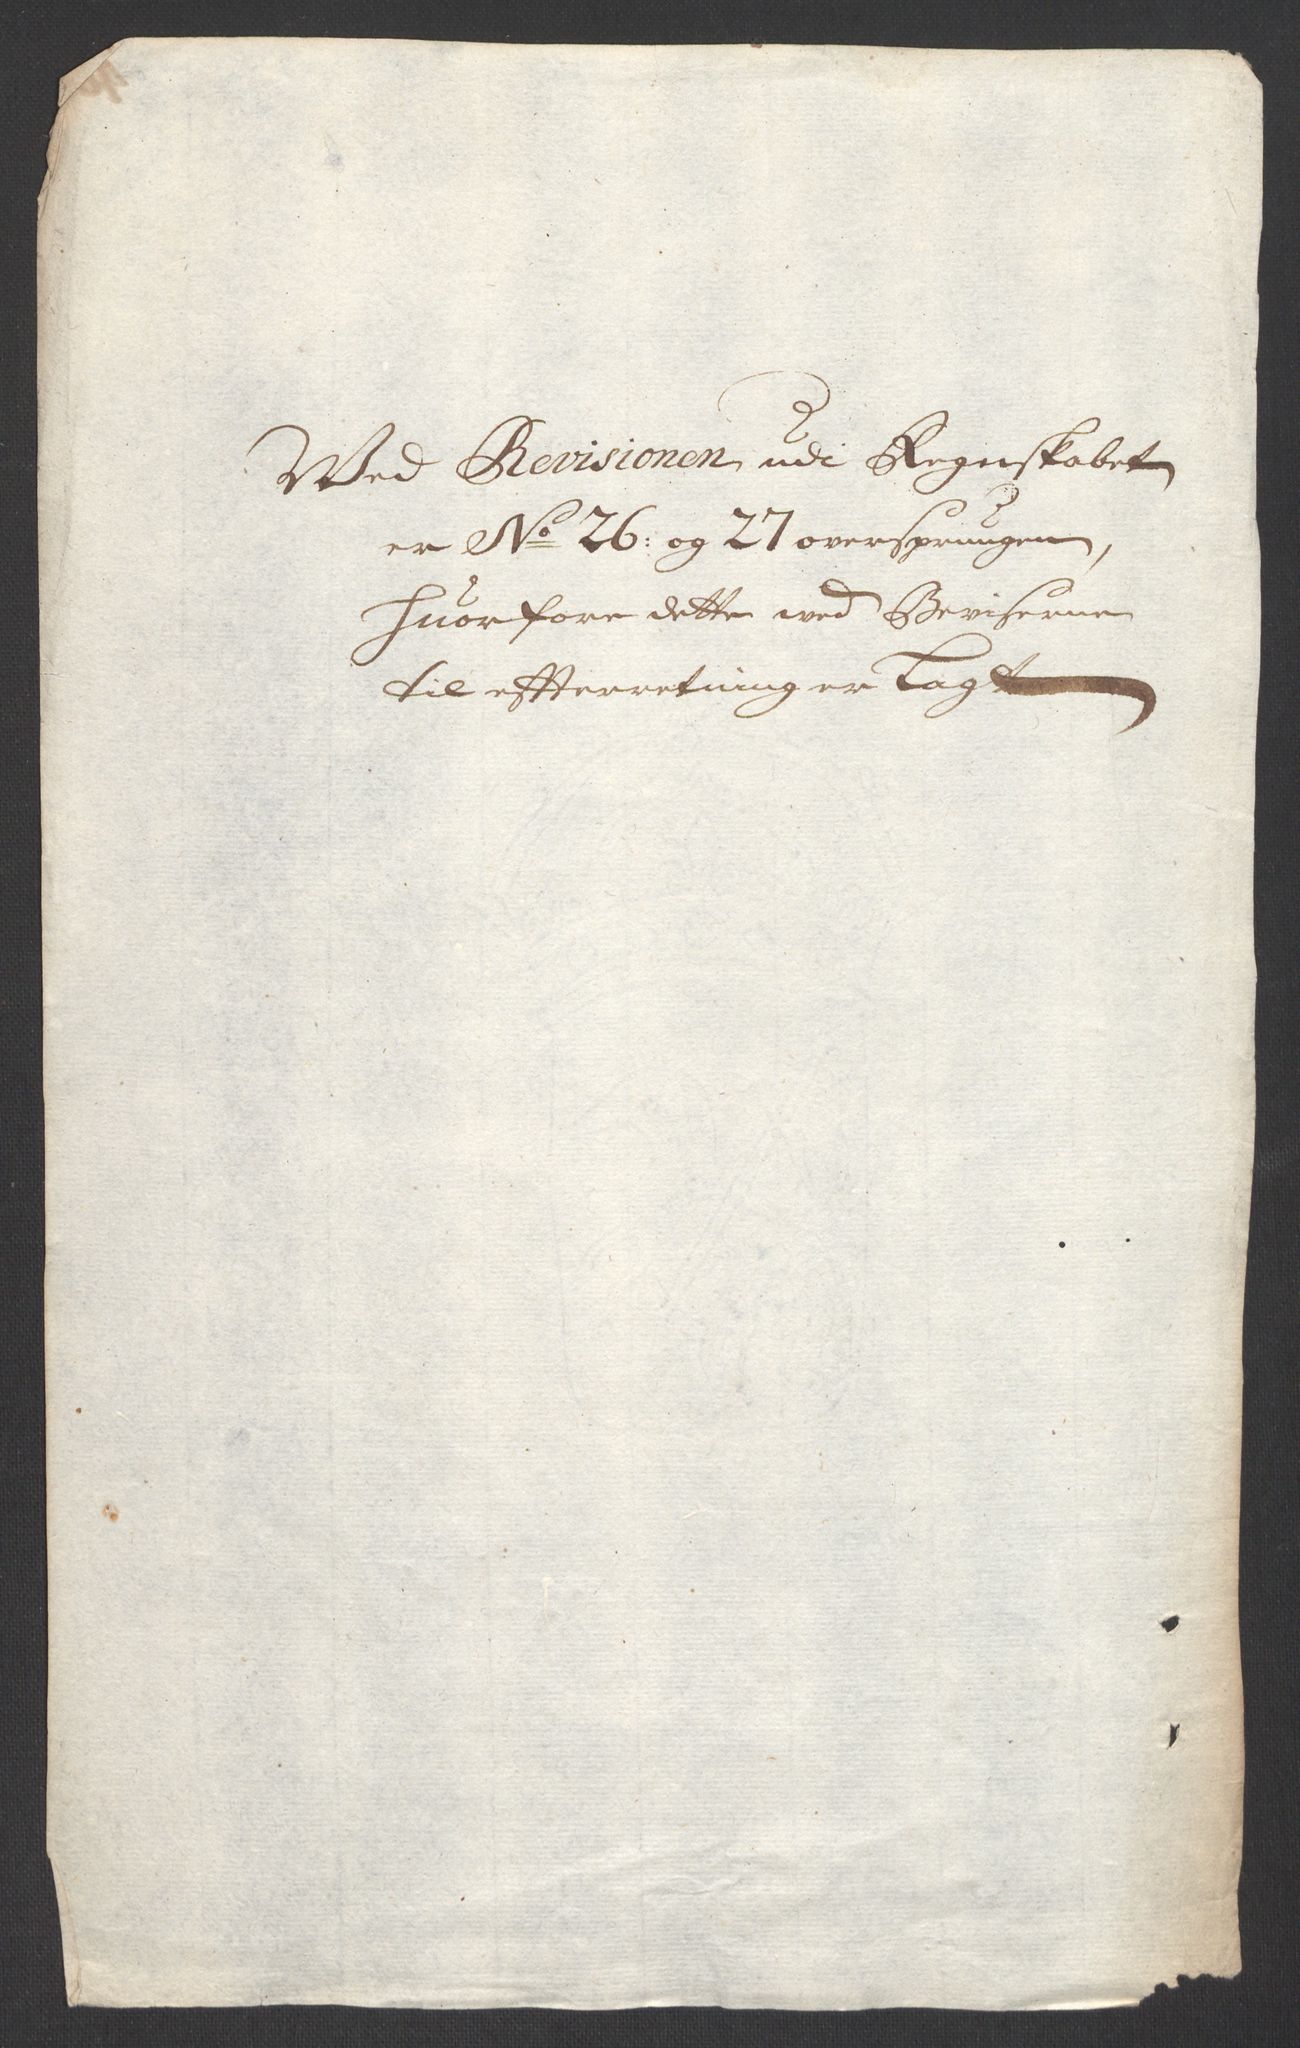 Wed Revisionen udi Regnskabet
er No 26: og 27 oversprungen,
huorfore dette wed Beviserne
til effterretning er Lagt